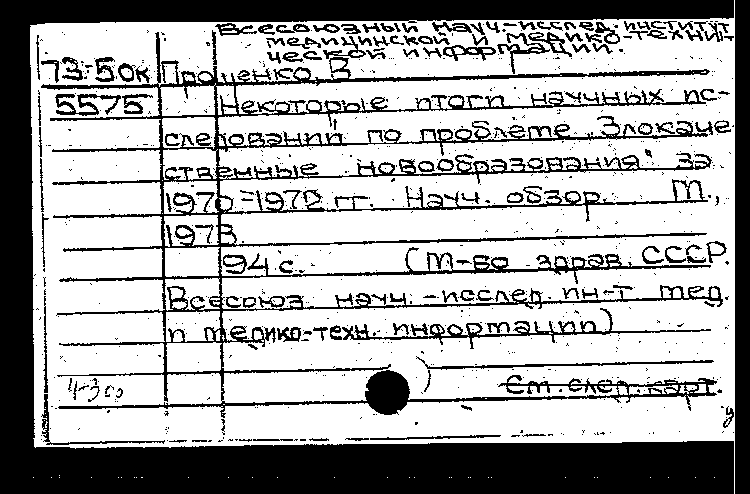 Всесоюзный науч.-исслед. институт
медицинской и медико-техни-
ческой информации.
73-50к Проценко, В
5575 Некоторые итоги научных ис-
следований по проблеме „Злокаче
ственные новообразования" за
1970-1972 гг. Науч. обзор. М.,
1973.
94 с. (М-во здрав. СССР.
Всесоюз. науч.-исслед. ин-т мед.
и медико-техн. информации)
4-300
См. след. карт.